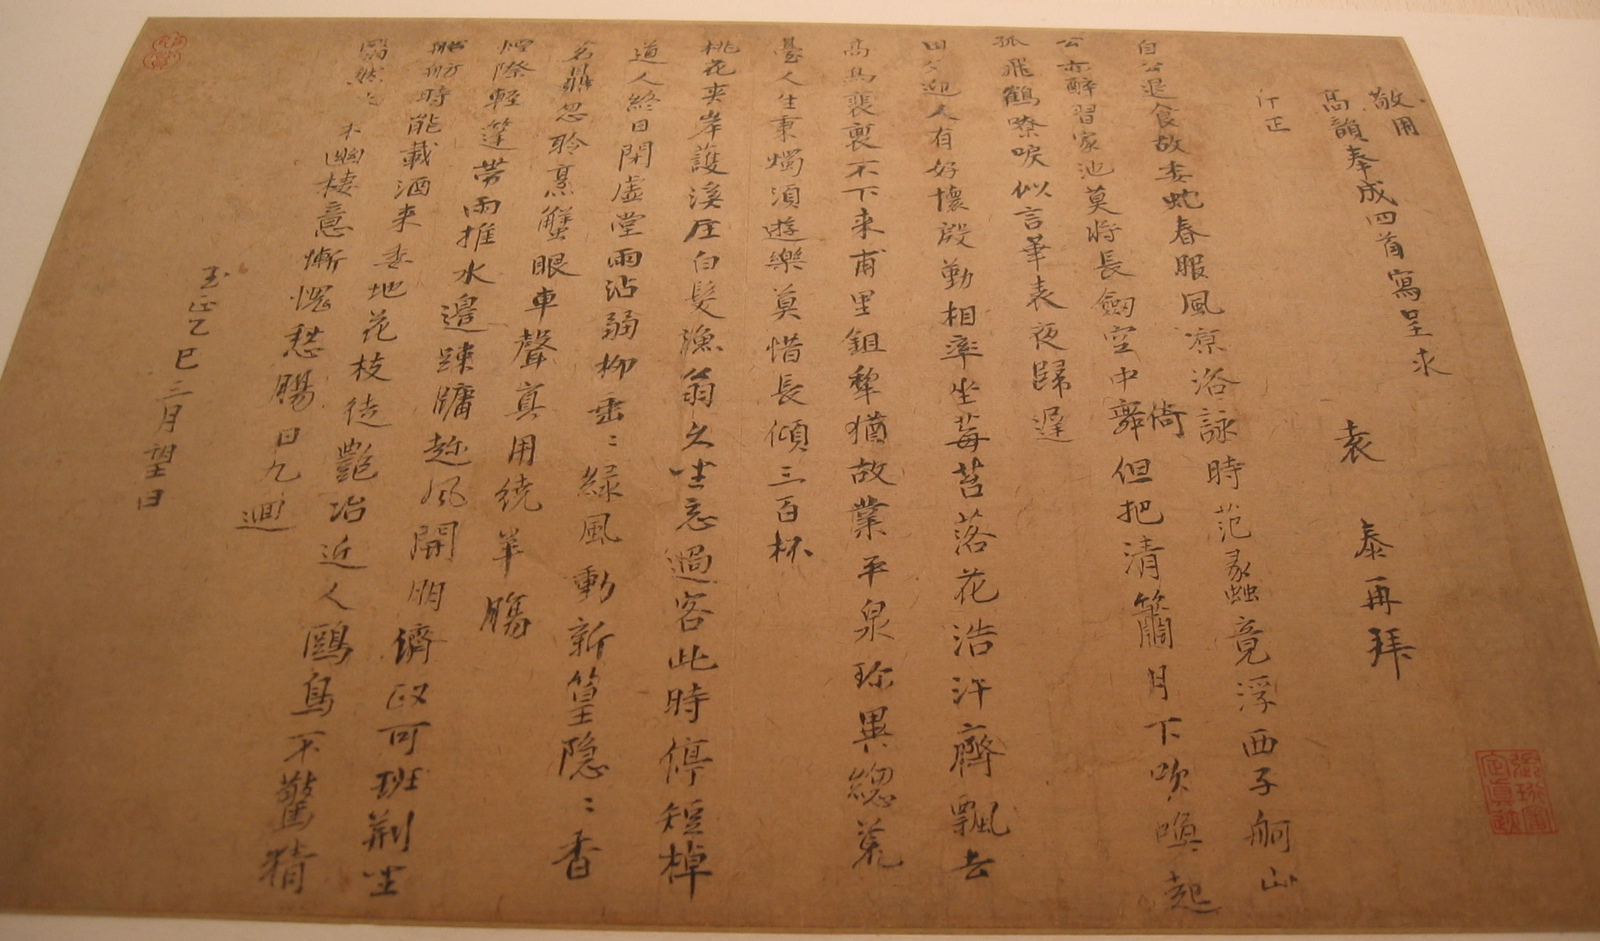 敬用
馬韻奉成四首寫呈求
斤正
袁泰再拜
自公退食故委蛇春服風凉浴詠時范蠡竟浮西子舸山
公亦醉習家池莫將長劔空中舞倚但把清簫月下吹喚起
孤飛鶴嘹唳似言華表夜歸遲
田父迎人有好懷殷勤相率坐莓苔落花浩汗齊飄去
高鳥裴褏不下来甫里鉏犂猶故業平泉珎異總荒
臺人生秉燭須遊樂莫惜長傾三百杯
桃花夾岸護溪庄白髮漁翁久坐忘過客此時停短棹
道人終日閉虛堂雨沾弱柳垂〻緑風動新篁隐〻香
茗鼎忽聆烹蟹眼車聲真用繞羊膓
煙際輕篷帶雨推水邉踈牖趂風開朋儕政可班荆坐
舫時能載酒来委地花枝徒艷冶近人鷗鳥不驚猜
然 幽棲意慚愧愁膓日九迴
至正乙巳三月望日